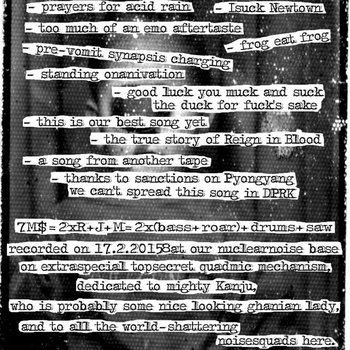 - prayers for acid rain
- Isuck Newtown
- too much of an emo aftertaste
- frog eat frog
- pre-vomit synapsis charging
- standing onanivation
- good luck you muck and suck
the duck for fuck's sake
- this is our best song yet
- the true story of Reign in Blood
- a song from another tape
- thanks to sanctions on Pyongyang
we can't spread this song in DPRK
7M$ = 2xR+J+M= 2x(bass+roar)+drums+saw
recorded on 17.2.20158at our nuclearnoise base
on extraspecial topsecret quadmic mechanism,
dedicated to mighty Kanju,
who is probably some nice looking ghanian lady,
and to all the world-shattering
noisesquads here.